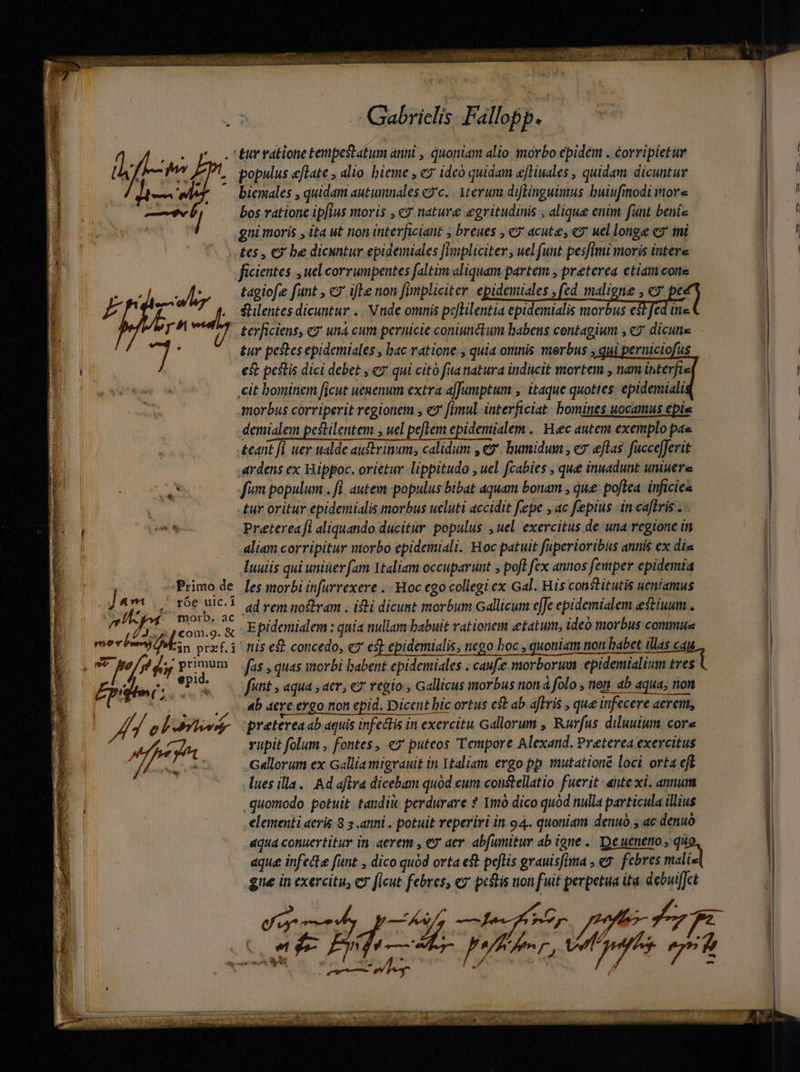 Gabrielis Fallopp.
tur ratione tempeſtatum anni, quoniam alio morbo epidem. corripietur
populus æſtate, alio hieme, & ideò quidam æſtiuales, quidam dicuntur
hiemales, quidam autumnales &c. Iterum diſtinguimus huiuſmodi mor=
bos ratione ipſius moris, & naturæ ægritudinis, aliquæ enim ſunt beni=
gni moris, ita ut non interficiant, breues, & acutæ, & uel longæ & mi
tes, & hæ dicuntur epidemiales ſimpliciter, uel ſunt peſſimi moris inter=
ficientes, uel corrumpentes ſaltim aliquam partem, præterea etiam con=
tagioſæ ſunt, & iſtæ non ſimpliciter epidemiales, ſed malignæ, & pe=
ſtilentes dicuntur. Vnde omnis peſtilentia epidemialis morbus eſt ſed in=
terficiens, & unà cum pernicie coniunctum habens contagium, & dicun=
tur peſtes epidemiales, hac ratione, quia omnis morbus, qui perniciofus
eſt peſtis dici debet, & qui citò ſua natura inducit mortem, nam interfi=
cit hominem ſicut uenenum extra aſſumptum, itaque quoties epidemialis
morbus corriperit regionem, & ſimul interficiat homines uocamus epi=
demialem peſtilentem, uel peſtem epidemialem. Hæc autem exemplo pa=
teant ſi uer ualde auſtrinum, calidum, & humidum, & æſtas ſucceſſerit
ardens ex Hippoc. orietur lippitudo, uel ſcabies, quæ inuadunt uniuer=
ſum populum. ſi autem populus bibat aquam bonam, quæ poſtea inficie=
tur oritur epidemialis morbus ueluti accidit ſæpe, ac ſæpius in caſtris.
Præterea ſi aliquando ducitur populus, uel exercitus de una regione in
aliam corripitur morbo epidemiali. Hoc patuit ſuperioribus annis ex di=
luuiis qui uniuerſam Italiam occuparunt, poſt ſex annos ſemper epidemia
Primo de les morbi inſurrexere. Hoc ego collegi ex Gal. His conſtitutis ueniamus
róe uic. i ad rem noſtram. iſti dicunt morbum Gallicum eſſe epidemialem æſtiuum.
morb. ac
com. 9. & Epidemialem: quia nullam habuit rationem ætatum, ideò morbus commu=
in præf. i nis eſt concedo, & eſt epidemialis, nego hoc, quoniam non habet illas cau
primum ſas, quas morbi habent epidemiales. cauſæ morborum epidemialium tres
epid. ſunt, aqua, aer, & regio, Gallicus morbus non à ſolo, non ab aqua, non
ab aere ergo non epid. Dicent hic ortus eſt ab aſtris, quæ infecere aerem,
præterea ab aquis infectis in exercitu Gallorum, Rurſus diluuium cor=
rupit ſolum, fontes, & puteos Tempore Alexand. Præterea exercitus
Gallorum ex Gallia migrauit in Italiam ergo pp mutationē loci orta eſt
lues illa. Ad aſtra dicebam quòd cum conſtellatio fuerit ante xi. annum
quomodo potuit tandiu perdurare? Imò dico quòd nulla particula illius
elementi aeris 83. anni. potuit reperiri in 94. quoniam denuò, ac denuò
aqua conuertitur in aerem, & aer abſumitur ab igne. De ueneno, quo
aquæ infectæ ſunt, dico quòd orta eſt peſtis grauiſſima, & febres mali=
gnæ in exercitu, & ſicut febres, & peſtis non fuit perpetua ita debuiſſet